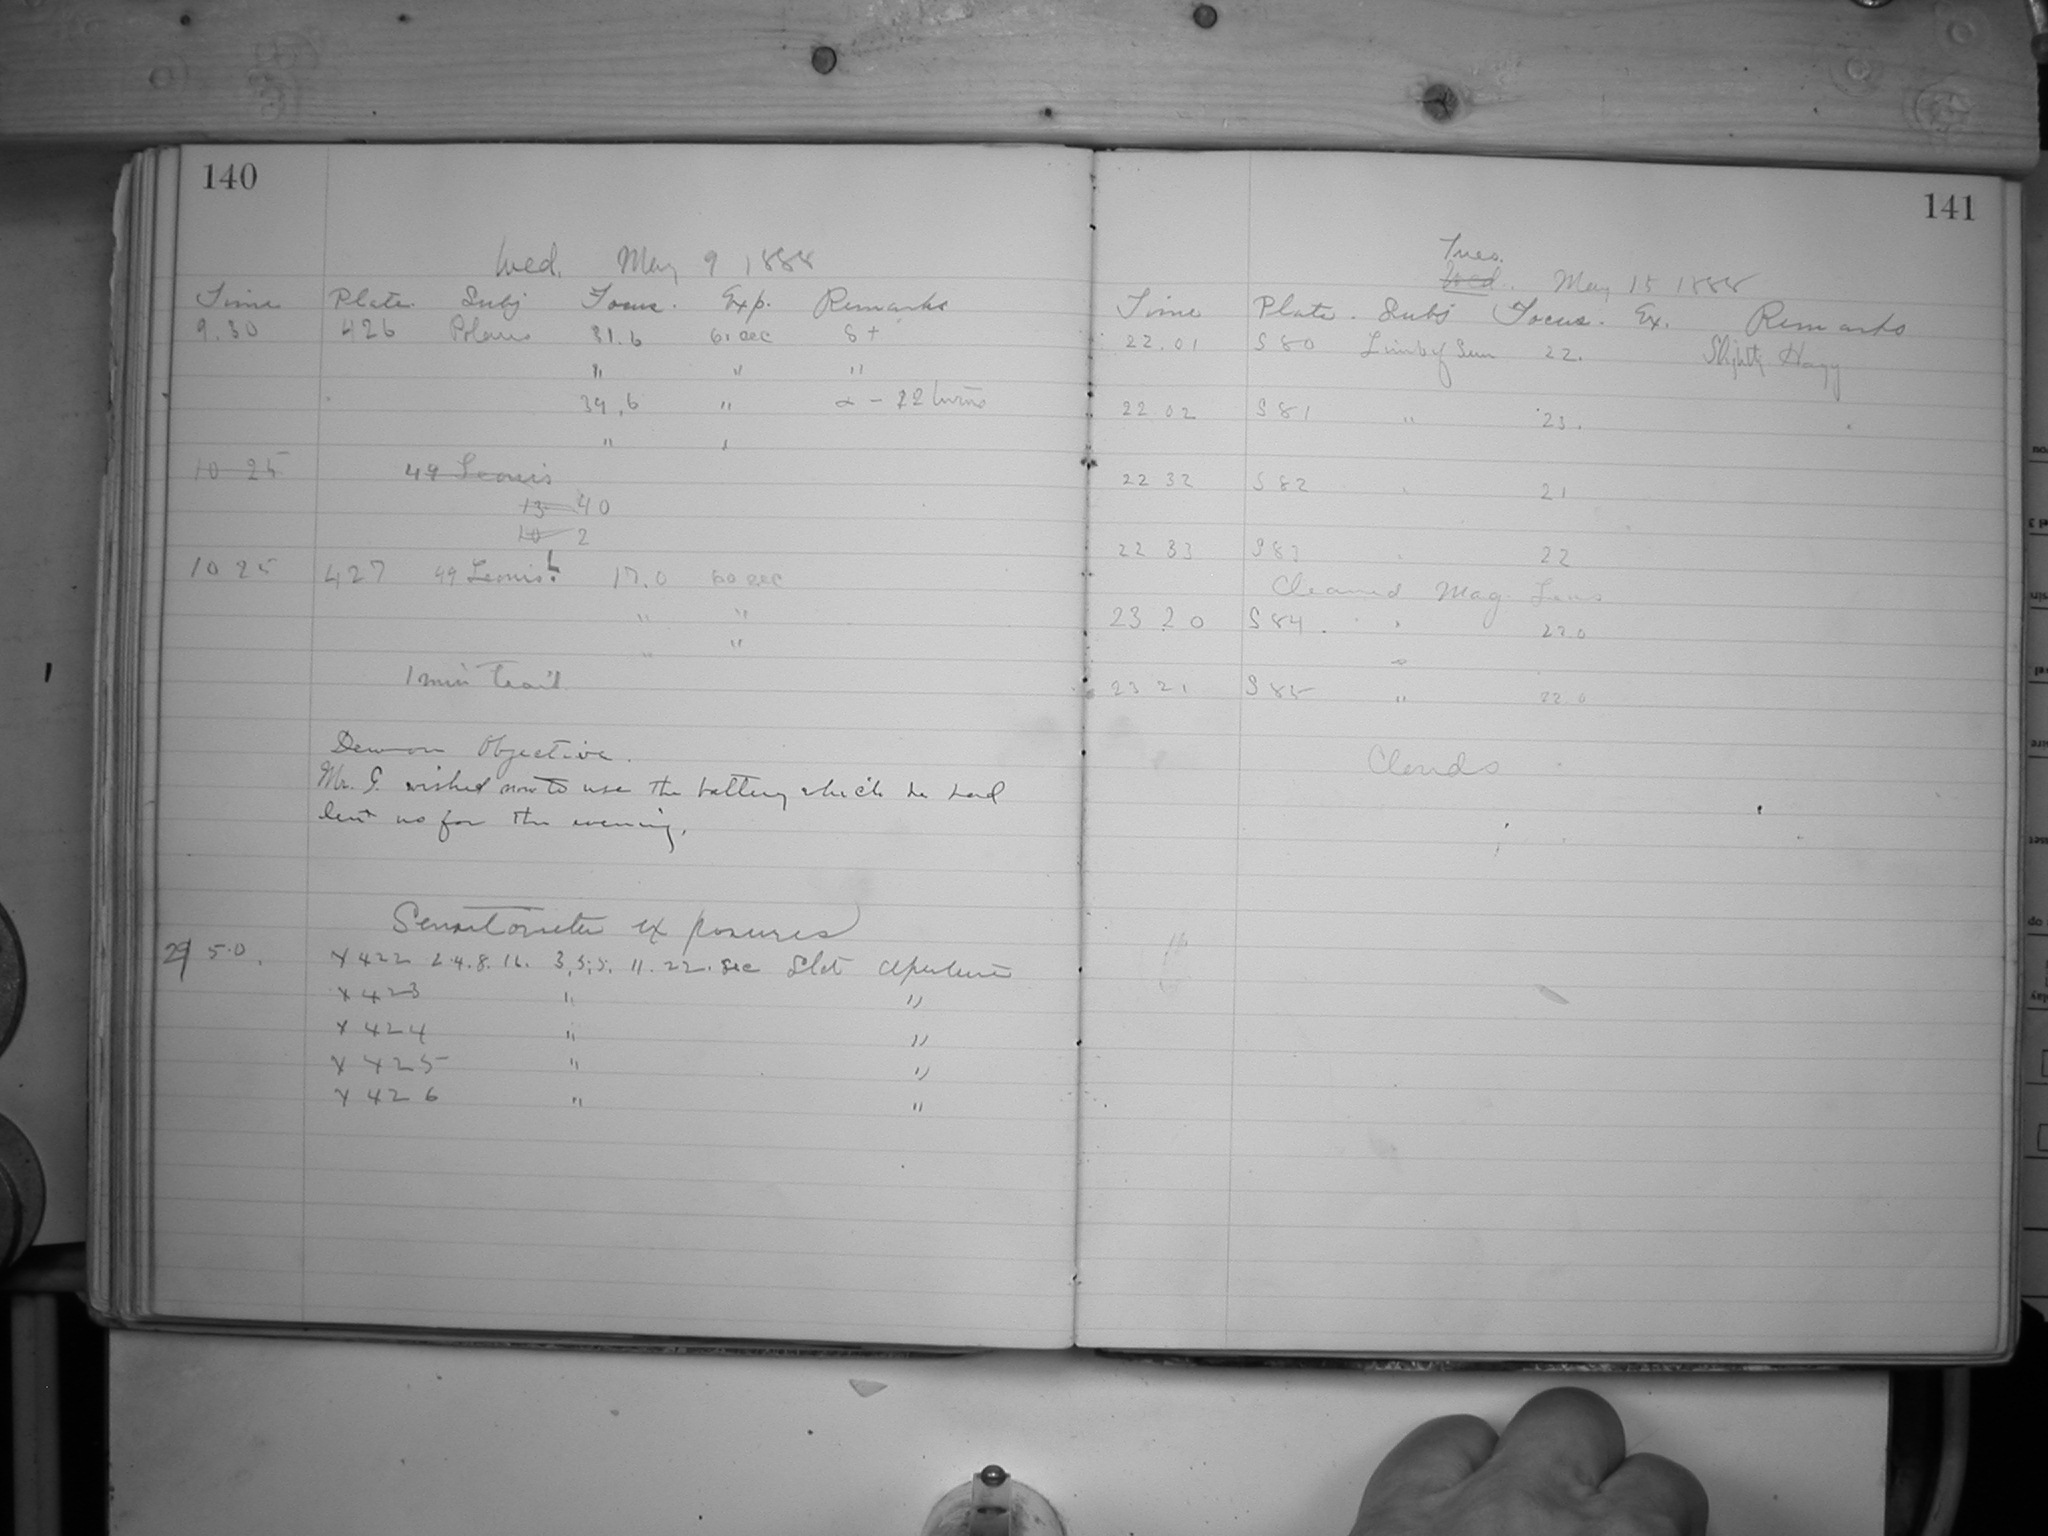 140
Wed. May 9 1888
Time Plate Subj Focus. Exp. Remarks
9.30 426 Polaris 31.6 60 sec S+
" " "
34.6 " α - 22 turns
" "
10 25 49 Leonis
13 40
10 2
10 25 427 49 Leonis 17.0 60 sec
" "
" "
1 min Trail
Objective.
Mr. G. wished to use the battery which he had
lent us for the evening.
Sensitometer exposures
29 5.0. X 422 2.4.8.16. 3, 5.5. 11. 22. sec Slot aperture
X 423 " "
X 424 " "
X 425 " "
X 426 " "
141
Tues.
Wed. May 15 1888
Time Plate. Subj Focus. Ex. Remarks
22.01 S 80 Limb of Sun 22. Slightly Hazy
22 02 S 81 " 23.
22 32 S 82 " 21
22 33 S 83 " 22
Cleaned Mag. Lens
23 20 S 84. " 22.0
23 21 S 85 " 22.0
Clouds